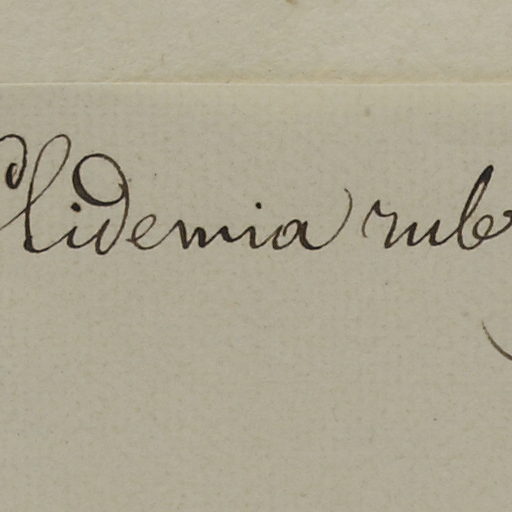 Clidemia rub